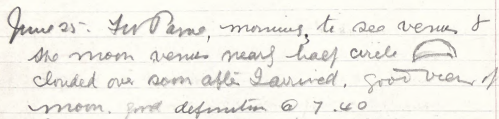 June 25. To Parne, morning, to see venus &
the moon venus nearly half circle
clouded over soon after I arrived. good view of
moon. good definition @ 7.40